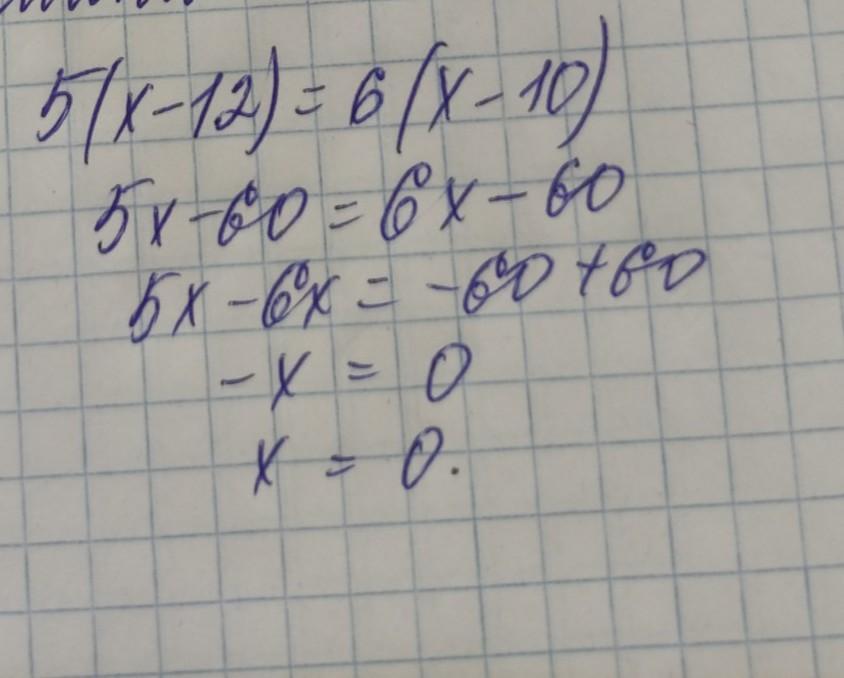 5(x-12)=6(x-10)
5x-60=6x-60
5x-6x=-60+60
-x=0
x=0.